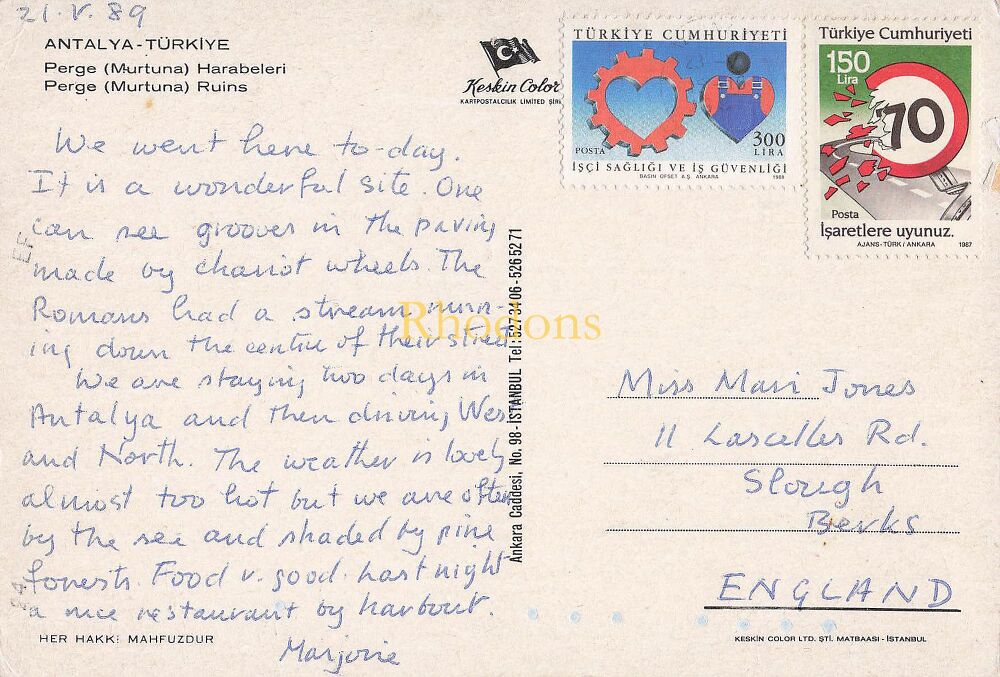 21.V.89
ANTALYA-TÜRKİYE
Perge (Murtuna) Harabeleri
Perge (Murtuna) Ruins
Keskin Color
KARTPOSTALCILIK LIMITED ŞİR
TÜRKİYE CUMHURİYETİ
23
POSTA
300
LİRA
İŞÇİ SAĞLIĞI VE İŞ GÜVENLİĞİ
BASIN OFSET A.Ş. ANKARA 1988
Türkiye Cumhuriyeti
150
Lira
70
Posta
İşaretlere uyunuz.
AJANS-TÜRK/ANKARA 1987
We went here to-day.
It is a wonderful site. One
can see grooves in the paving
made by chariot wheels. The
Romans had a stream runn-
ing down the centre of their street
We are staying two days in
Antalya and then driving Wes
and North. The weather is lovely
almost too hot but we are often
by the sea and shaded by pine
forests. Food v. good. Last night
a nice restaurant by harbour.
Marjorie
HER HAKKI MAHFUZDUR
EF
24
Ankara Caddesi, No. 98-İSTANBUL Tel: 5273406-5265271
Rhodons
Miss Mari Jones
11 Lascelles Rd.
Slough
Berks
ENGLAND
KESKIN COLOR LTD. ŞTİ. MATBAASI - İSTANBUL